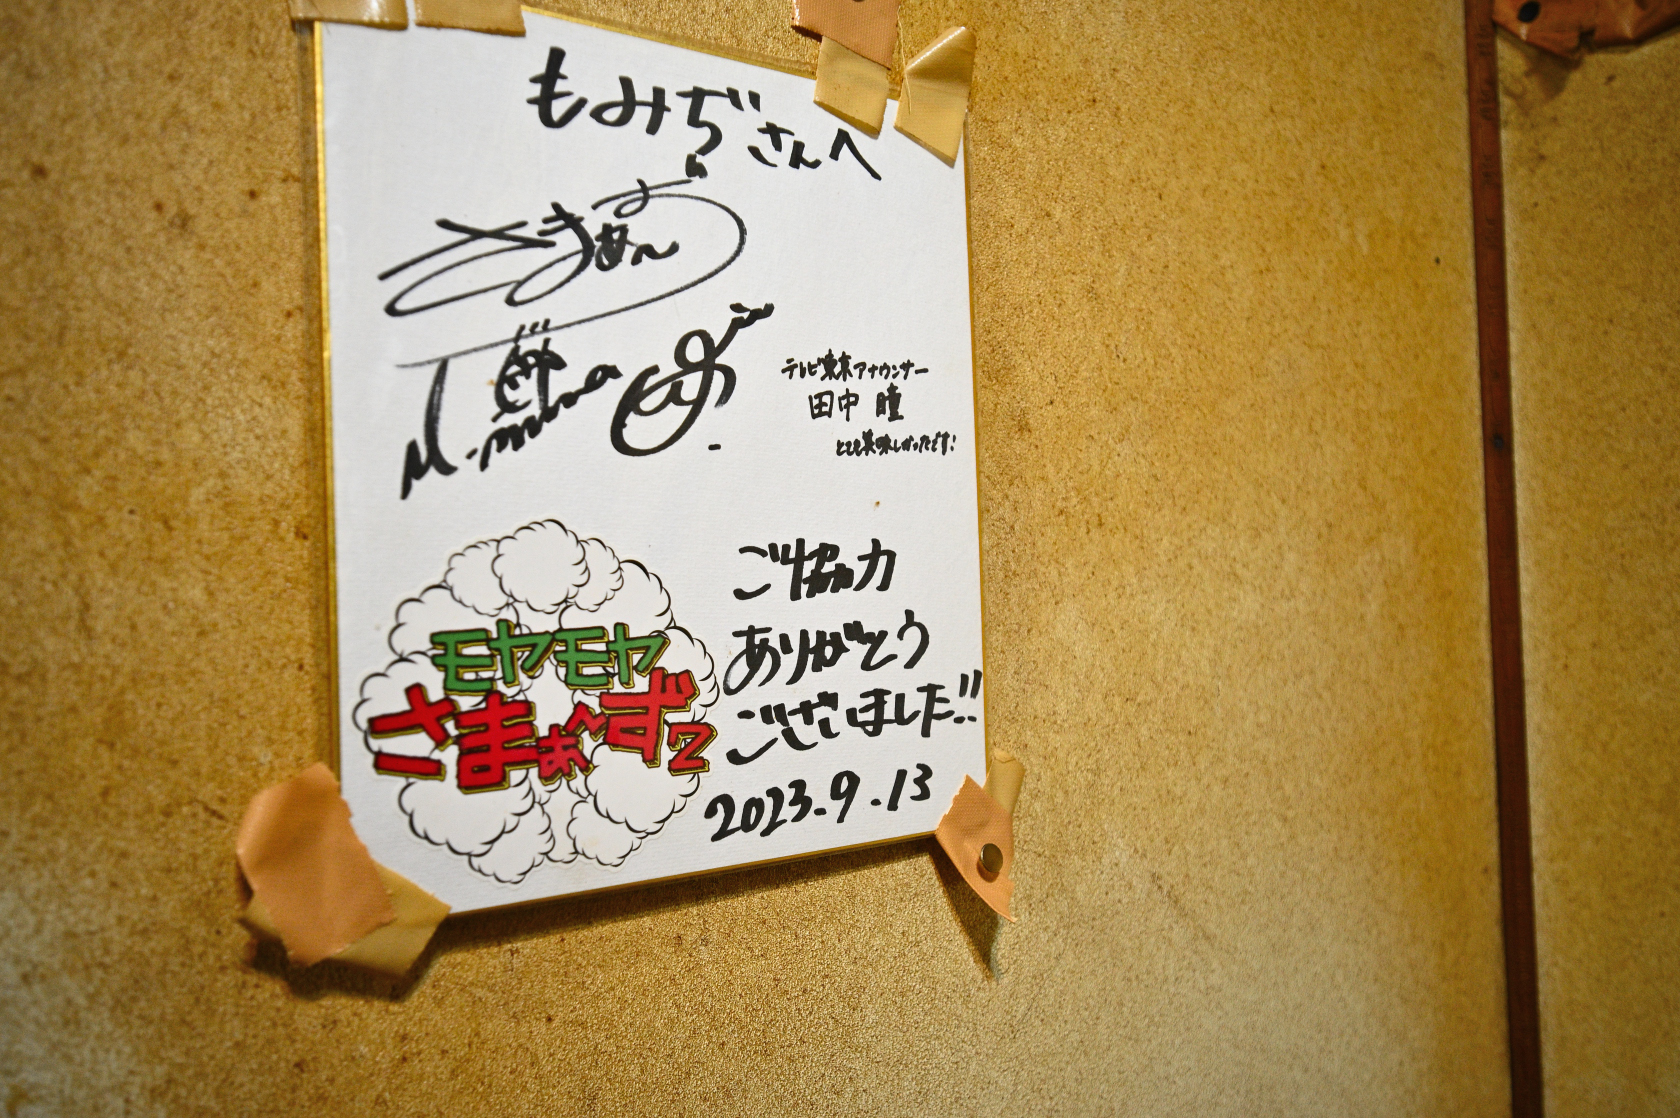 もみぢさんへ
さまぁ〜ず
M.mimura
テレビ東京アナウンサー
田中 瞳
とても美味しかったです!
モヤモヤ
さまぁ〜ず2
ご協力
ありがとう
ございました!!
2023.9.13